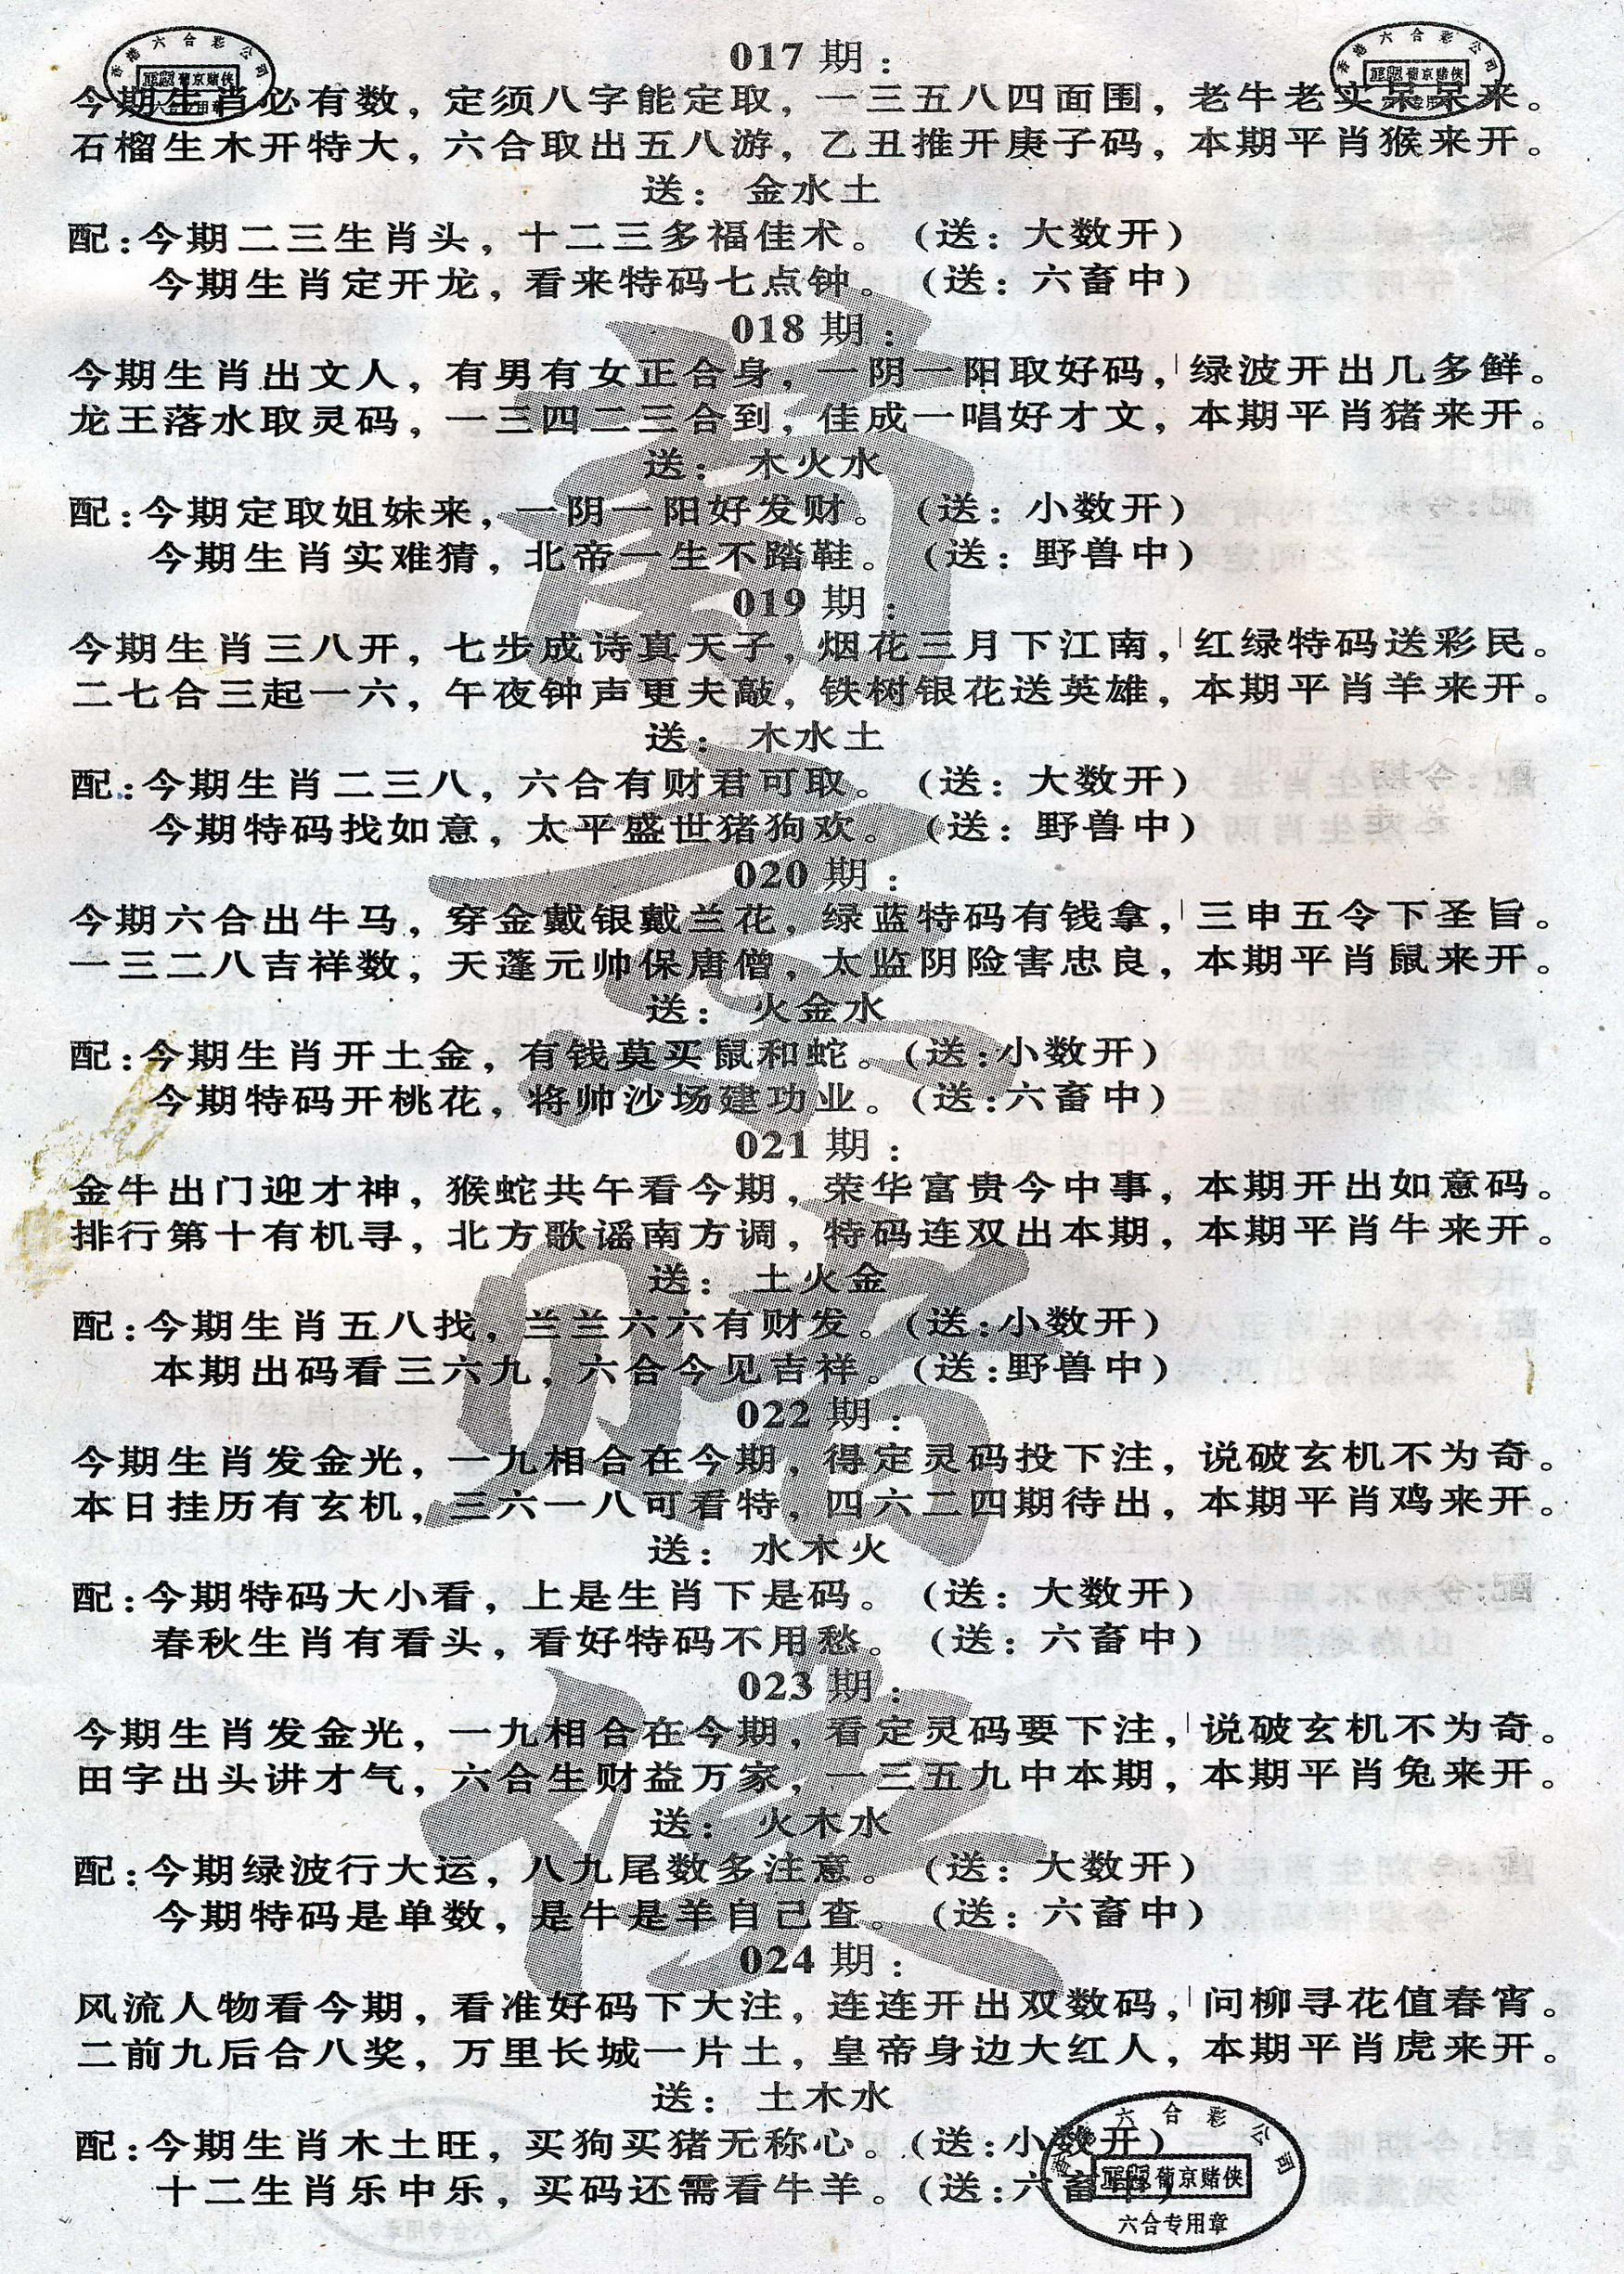 香港六合彩公司
正版葡京赌侠
六合专用章
香港六合彩公司
正版葡京赌侠
017期：
今期生肖必有数，定须八字能定取，一三五八四面围，老牛老实呆呆来。
石榴生木开特大，六合取出五八游，乙丑推开庚子码，本期平肖猴来开。
送：金水土
配：今期二三生肖头，十二三多福佳术。（送：大数开）
今期生肖定开龙，看来特码七点钟。（送：六畜中）
018期：
今期生肖出文人，有男有女正合身，一阴一阳取好码，绿波开出几多鲜。
龙王落水取灵码，一三四二三合到，佳成一唱好才文，本期平肖猪来开。
送：木火水
配：今期定取姐妹来，一阴一阳好发财。（送：小数开）
今期生肖实难猜，北帝一生不踏鞋。（送：野兽中）
019期：
今期生肖三八开，七步成诗真天子，烟花三月下江南，红绿特码送彩民。
二七合三起一六，午夜钟声更夫敲，铁树银花送英雄，本期平肖羊来开。
送：木水土
配：今期生肖二三八，六合有财君可取。（送：大数开）
今期特码找如意，太平盛世猪狗欢。（送：野兽中）
020期：
今期六合出牛马，穿金戴银戴兰花，绿蓝特码有钱拿，三申五令下圣旨。
一三二八吉祥数，天蓬元帅保唐僧，太监阴险害忠良，本期平肖鼠来开。
送：火金水
配：今期生肖开土金，有钱莫买鼠和蛇。（送：小数开）
今期特码开桃花，将帅沙场建功业。（送：六畜中）
021期：
金牛出门迎才神，猴蛇共午看今期，荣华富贵今中事，本期开出如意码。
排行第十有机寻，北方歌谣南方调，特码连双出本期，本期平肖牛来开。
送：土火金
配：今期生肖五八找，兰兰六六有财发。（送：小数开）
本期出码看三六九，六合今见吉祥。（送：野兽中）
022期：
今期生肖发金光，一九相合在今期，得定灵码投下注，说破玄机不为奇。
本日挂历有玄机，三六一八可看特，四六二四期待出，本期平肖鸡来开。
送：水木火
配：今期特码大小看，上是生肖下是码。（送：大数开）
春秋生肖有看头，看好特码不用愁。（送：六畜中）
023期：
今期生肖发金光，一九相合在今期，看定灵码要下注，说破玄机不为奇。
田字出头讲才气，六合生财益万家，一三五九中本期，本期平肖兔来开。
送：火木水
配：今期绿波行大运，八九尾数多注意。（送：大数开）
今期特码是单数，是牛是羊自己查。（送：六畜中）
024期：
风流人物看今期，看准好码下大注，连连开出双数码，问柳寻花值春宵。
二前九后合八奖，万里长城一片土，皇帝身边大红人，本期平肖虎来开。
送：土木水
配：今期生肖木土旺，买狗买猪无称心。（送：小数开）
十二生肖乐中乐，买码还需看牛羊。（送：六畜中）
香港六合彩公司
正版葡京赌侠
六合专用章
葡京赌侠